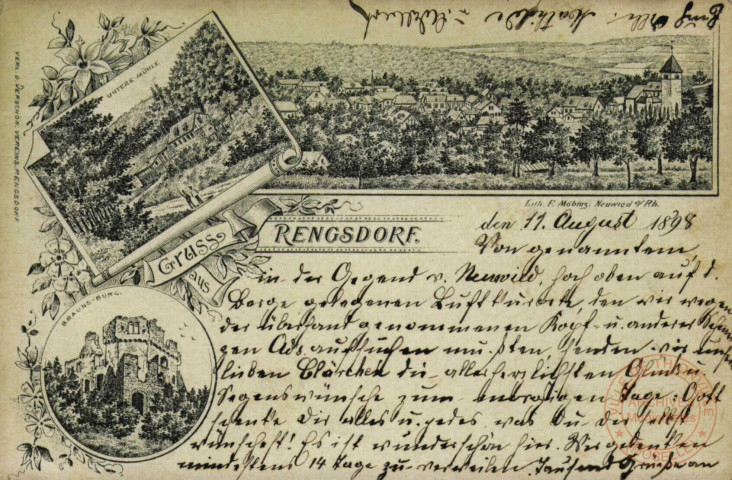 VERL. D. VERSCHÖN. VEREINS RENGSDORF.
UNTERE-MÜHLE
Lith. F. Möbius, Neuwied a/Rh.
Gruss aus
RENGSDORF.
BRAUNS-BURG.
den 11. August 1898
Von genanntem,
in der Gegend v. Neuwied, hoch oben auf d.
Berge gelegenen Luftkurorte, den wir wegen
der überhand genommenen Kopf- u. anderer
aufsuchen mußten, senden wir
lieben Clärchen die allerherzlichsten Glück- u.
Segenswünsche zum Tage: Gott
schenke Dir alles u. jedes was Du dir selbst
wünschest! Es ist wunderschön hier. Wir gedenken
mindestens 14 Tage zu verweilen. Tausend Grüße an